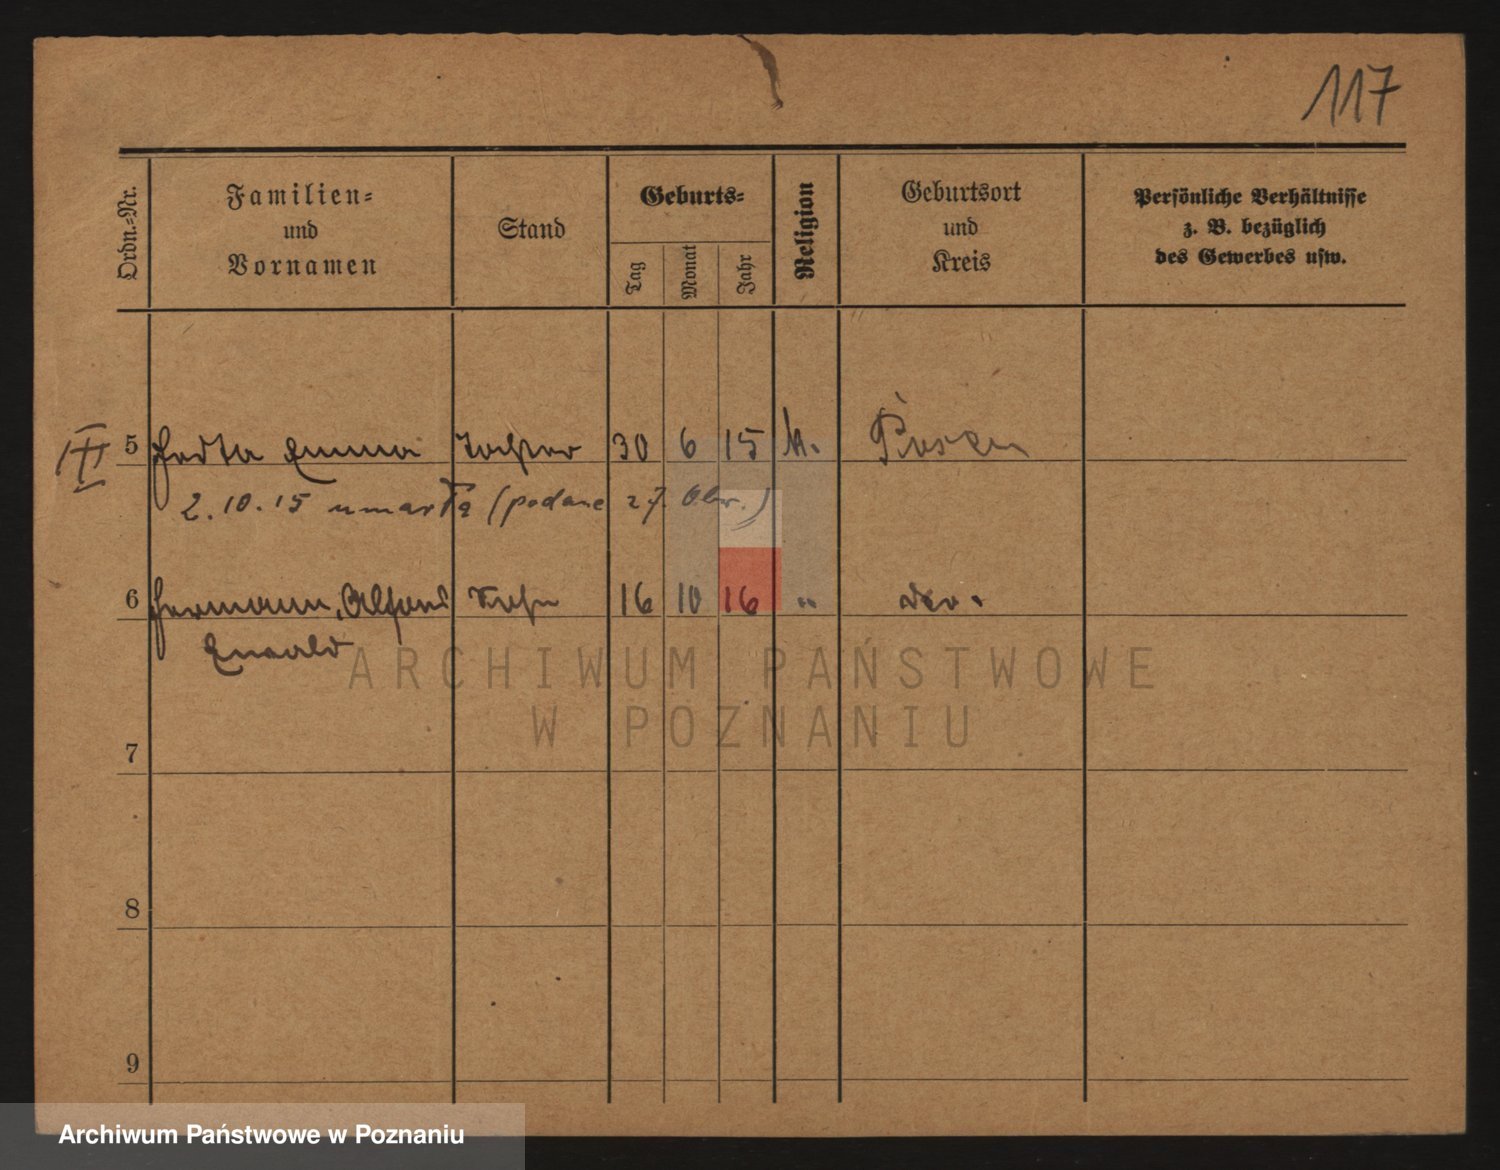 117
Ordn.-Nr.
Familien-
und
Vornamen
Stand
Geburts-
Tag
Monat
Jahr
Religion
Geburtsort
und
Kreis
Persönliche Verhältnisse
z. B. bezüglich
des Gewerbes usw.
III 5 Herta Emma Tochter 30 6 15 k. Posen
2.10.15 umarła (podanie
6 Hermann, Alfons Sohn 16 10 16 " dto.
Ewald
7
8
9
ARCHIWUM PAŃSTWOWE
W POZNANIU
Archiwum Państwowe w Poznaniu